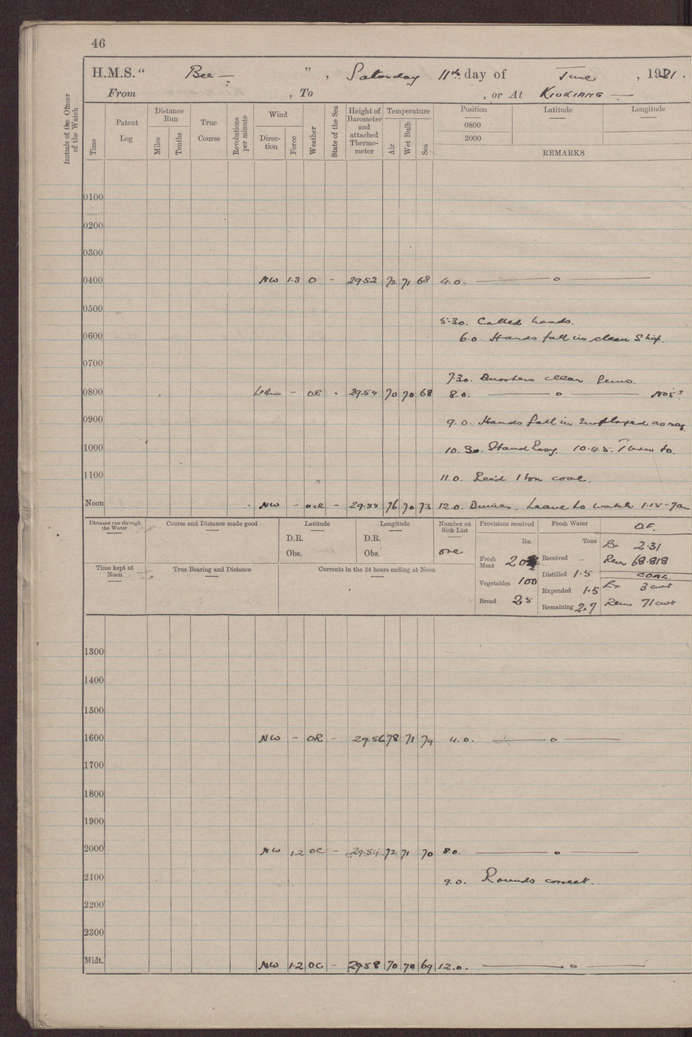 46
H.M.S. " Bee — " , Saturday 11th day of June , 1921.
From , To , or At KIUKIANG —
Initials of the Officer of the Watch
Time
Patent Log
Distance Run
Miles
Tenths
True Course
Revolutions per minute
Wind
Direction
Force
Weather
State of the Sea
Height of Barometer and attached Thermometer
Temperature
Air
Wet Bulb
Sea
Position Latitude Longitude
0800
2000
REMARKS
0100
0200
0300
0400 NW 1.3 O - 29.52 72 71 68 4.0. — o —
0500
5.30. Called hands.
0600 6.0 Hands fall in clean Ship.
0700
7.30. Quarters clean Guns.
0800 - OR - 29.54 70 70 68 8.0. — o —
0900 9.0. Hands fall in Employed as req
1000 10.30. Stand Easy. 10.45. Turn to.
1100 11.0. Rec'd 1 ton coal.
Noon NW - OCR - 29.55 76 70 73 12.0. Dinner. Leave to watch 1.15-7am
Distance run through the Water
Course and Distance made good
Latitude
D.R.
Obs.
Longitude
D.R.
Obs.
Number on Sick List
one
Provisions received
lbs.
Fresh Meat 20
Vegetables 100
Bread 25
Fresh Water
Tons
Received -
Distilled 1.5
Expended 1.5
Remaining 2.7
O.F.
Ex 2.31
Rem 68.818
COAL
Ex 3 cwt
Rem 71 cwt
Time kept at Noon
True Bearing and Distance
Currents in the 24 hours ending at Noon
1300
1400
1500
1600 NW - OR - 29.56 78 71 74 4.0. — o —
1700
1800
1900
2000 NW 1.2 OC - 29.54 72 71 70 8.0. — o —
2100 9.0. Rounds correct.
2200
2300
Midt. NW 1.2 OC - 29.58 70 70 69 12.0. — o —